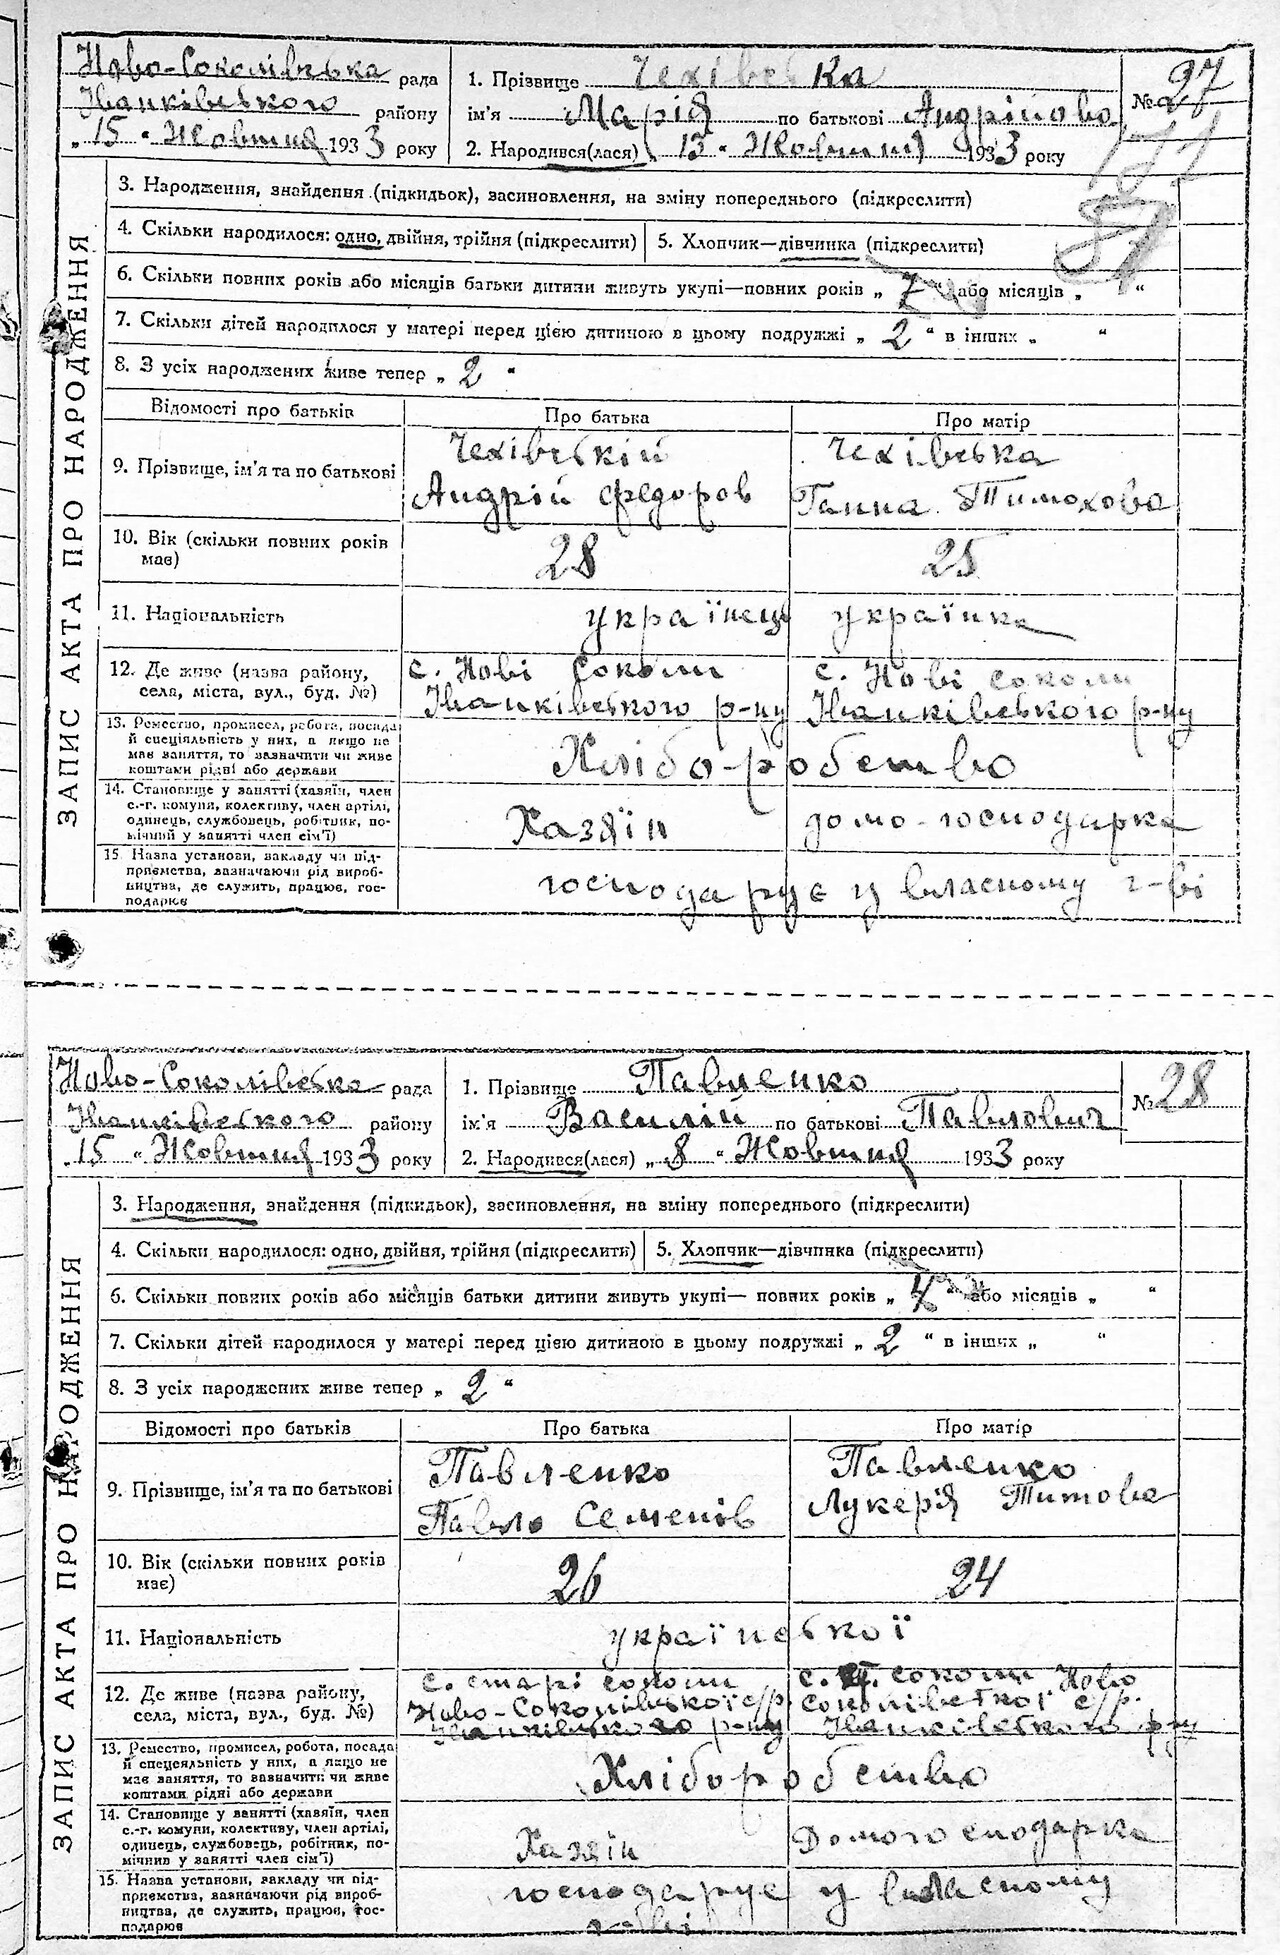 ЗАПИС АКТА ПРО НАРОДЖЕННЯ
Ново-Соколівська рада
Іванківського району
„15" Жовтня 1933 року
1. Прізвище Чехівська
ім'я Марія по батькові Андрійова
2. Народився(лася) 13 " Жовтня 1933 року
№ 27
3. Народження, знайдення (підкидьок), засиновлення, на зміну попереднього (підкреслити)
4. Скільки народилося: одно, двійня, трійня (підкреслити)
5. Хлопчик—дівчинка (підкреслити)
6. Скільки повних років або місяців батьки дитини живуть укупі—повних років „ 7 " або місяців „ "
7. Скільки дітей народилося у матері перед цією дитиною в цьому подружжі „ 2 " в інших „ "
8. З усіх народжених живе тепер „ 2 "
Відомості про батьків
Про батька
Про матір
9. Прізвище, ім'я та по батькові
Чехівський
Андрій Федоров
Чехівська
Ганна Тимохова
10. Вік (скільки повних років
має)
28
25
11. Національність
українець
українка
12. Де живе (назва району,
села, міста, вул., буд. №)
с. Нові Соколи
Іванківського р-ну
с. Нові соколи
Іванківського р-ну
13. Ремество, промисел, робота, посада
й спеціяльність у них, а якщо не
має заняття, то зазначити чи живе
коштами рідні або держави
Хліборобство
14. Становище у занятті (хазяїн, член
с.-г. комуни, колективу, член артілі,
одинець, службовець, робітник, по-
мічний у занятті член сім'ї)
Хазяїн
домо-господарка
15. Назва установи, закладу чи під-
приємства, зазначаючи рід вироб-
ництва, де служить, працює, гос-
подарює
господарує у власному г-ві
ЗАПИС АКТА ПРО НАРОДЖЕННЯ
Ново-Соколівська рада
Іванківського району
„15 " Жовтня 1933 року
1. Прізвище Павленко
ім'я Василій по батькові Павлович
2. Народився(лася) „ 8 " Жовтня 1933 року
№ 28
3. Народження, знайдення (підкидьок), засиновлення, на зміну попереднього (підкреслити)
4. Скільки народилося: одно, двійня, трійня (підкреслити)
5. Хлопчик—дівчинка (підкреслити)
6. Скільки повних років або місяців батьки дитини живуть укупі— повних років „ 4 " або місяців „ "
7. Скільки дітей народилося у матері перед цією дитиною в цьому подружжі „ 2 " в інших „ "
8. З усіх народжених живе тепер „ 2 "
Відомості про батьків
Про батька
Про матір
9. Прізвище, ім'я та по батькові
Павленко
Павло Семенів
Павленко
Лукерія Титова
10. Вік (скільки повних років
має)
26
24
11. Національність
української
12. Де живе (назва району,
села, міста, вул., буд. №)
с. старі соколи
Ново-Соколівської с/р.
Іванківського р-ну
с. ст. соколи Ново
соколівської с/р.
Іванківського р-ну
13. Ремество, промисел, робота, посада
й спецеяльність у них, а якщо не
має заняття, то зазначити чи живе
коштами рідні або держави
Хліборобство
14. Становище у занятті (хазяїн, член
с.-г. комуни, колективу, член артілі,
одинець, службовець, робітник, по-
мічник у занятті член сім'ї)
Хазяїн
Домогосподарка
15. Назва установи, закладу чи під-
приємства, зазначаючи рід вироб-
ництва, де служить, працює, гос-
подарює
господарує у власному
г-ві